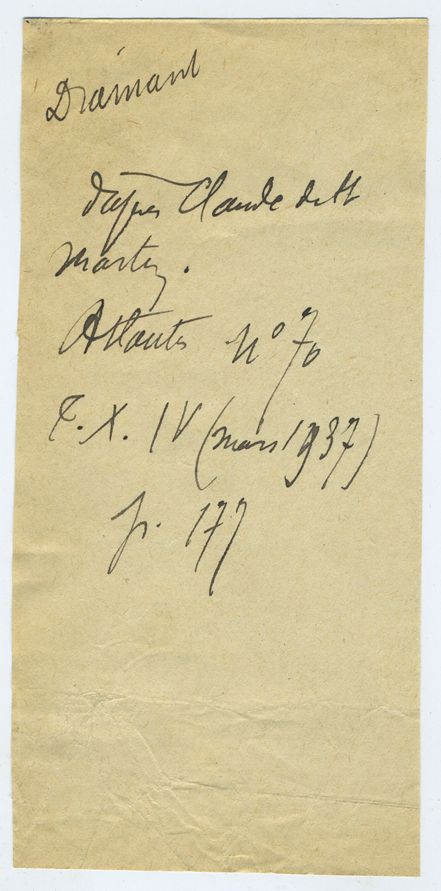 Diamant
d'après Claude de St
Martin.
Atlantis N° 70
T. X. IV (mars 1937)
p. 177